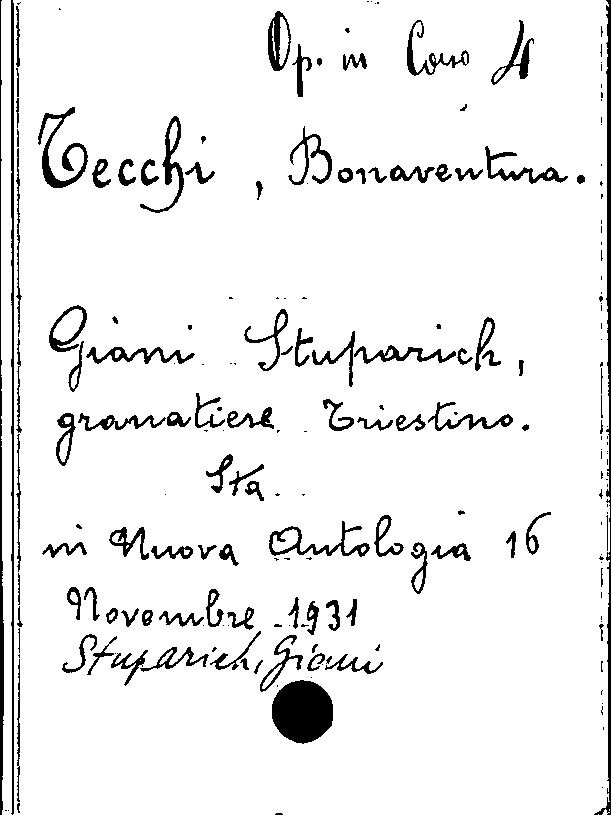 Op. in Corso 4
Tecchi, Bonaventura.
Giani Stuparich,
granatiere Triestino.
Sta
in Nuova Antologia 16
Novembre 1931
Stuparich, Giani